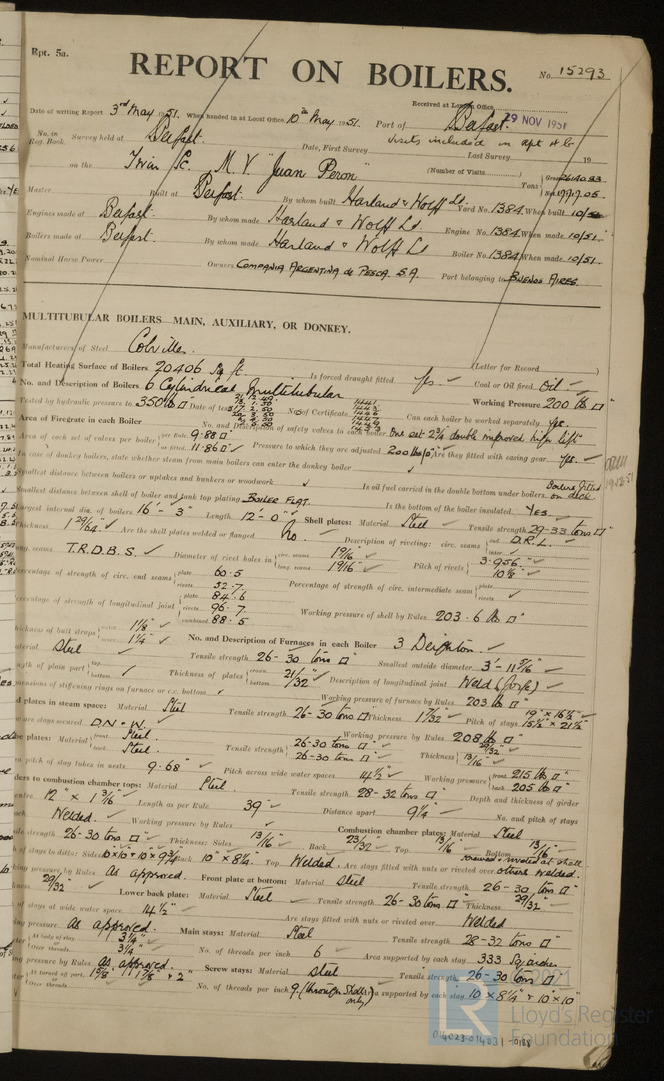 Rpt. 5a.
REPORT ON BOILERS.
No. 15293
Received at London Office 29 NOV 1951
Date of writing Report 3rd May 1951. When handed in at Local Office 10th May 1951. Port of Belfast.
No. in Reg. Book. Survey held at Belfast. Date, First Survey visits included in rpt 4b Last Survey 19
on the Twin Sc. M.V. "Juan Peron" (Number of Visits) Tons Gross Net
Master Built at Belfast. By whom built Harland & Wolff Ld. Yard No. 1384. When built 10/51
Engines made at Belfast. By whom made Harland & Wolff Ld. Engine No. 1384 When made 10/51.
Boilers made at Belfast. By whom made Harland & Wolff Ld Boiler No. 1384 When made 10/51.
Nominal Horse Power Owners Compania Argentina de Pesca. S.A. Port belonging to Buenos Aires.
MULTITUBULAR BOILERS MAIN, AUXILIARY, OR DONKEY.
Manufacturers of Steel Colvilles. (Letter for Record)
Total Heating Surface of Boilers 20406 sq ft. Is forced draught fitted Yes. Coal or Oil fired Oil.
No. and Description of Boilers 6 Cylindrical Multitubular Working Pressure 200 lb □"
Tested by hydraulic pressure to 350 lb □" Date of test No. of Certificate Can each boiler be worked separately Yes.
Area of Firegrate in each Boiler No. and Description of safety valves to each boiler One set 2¾ double improved high lift
Area of each set of valves per boiler per Rule 9.88 □" as fitted 11.86 □" Pressure to which they are adjusted 200 lb/□". Are they fitted with easing gear Yes.
In case of donkey boilers, state whether steam from main boilers can enter the donkey boiler
Smallest distance between boilers or uptakes and bunkers or woodwork Is oil fuel carried in the double bottom under boilers Boilers fitted on deck.
Smallest distance between shell of boiler and tank top plating Boiler Flat. Is the bottom of the boiler insulated Yes.
Largest internal dia. of boilers 16' - 3" Length 12' - 0" Shell plates: Material Steel Tensile strength 29-33 tons □"
Thickness 1 29/64" Are the shell plates welded or flanged No. Description of riveting: circ. seams end D.R.L. inter.
long. seams T.R.D.B.S. Diameter of rivet holes in circ. seams 1 9/16 long. seams 1 9/16 Pitch of rivets 3.956" 10⅛"
Percentage of strength of circ. end seams plate 60.5 rivets 52.7 Percentage of strength of circ. intermediate seam plate rivets
Percentage of strength of longitudinal joint plate 84.6 rivets 96.7 combined 88.5 Working pressure of shell by Rules 203.6 lb □"
Thickness of butt straps outer 1⅛" inner 1¼" No. and Description of Furnaces in each Boiler 3 Deighton.
Material Steel Tensile strength 26-30 tons □" Smallest outside diameter 3'- 11 3/16"
Length of plain part top bottom Thickness of plates crown bottom 21/32" Description of longitudinal joint Weld (forge)
Dimensions of stiffening rings on furnace or c.c. bottom Working pressure of furnace by Rules 203 lb □"
End plates in steam space: Material Steel Tensile strength 26-30 tons □" Thickness 1 7/32" Pitch of stays 19" x 16½" 15½" x 21½"
How are stays secured D.N. & W. Working pressure by Rules 208 lb □"
Tube plates: Material front Steel. back Steel. Tensile strength 26-30 tons □" 26-30 tons □" Thickness 29/32" 13/16"
Mean pitch of stay tubes in nests 9.68" Pitch across wide water spaces 14½" Working pressure front 215 lb □" back 205 lb □"
Girders to combustion chamber tops: Material Steel. Tensile strength 28-32 tons □" Depth and thickness of girder
at centre 12" x 1 3/16" Length as per Rule 39" Distance apart 9¼" No. and pitch of stays
in each Welded. Working pressure by Rules Combustion chamber plates: Material Steel
Tensile strength 26-30 tons □" Thickness: Sides 13/16" Back 23/32" Top 13/16" Bottom 13/16"
Pitch of stays to ditto: Sides 10 x 10 & 10 x 9¾ Back 10" x 8¼" Top Welded. Are stays fitted with nuts or riveted over screwed & riveted at shell others welded.
Working pressure by Rules As approved. Front plate at bottom: Material Steel Tensile strength 26-30 tons □"
Thickness 29/32" Lower back plate: Material Steel Tensile strength 26-30 tons □" Thickness 29/32"
Pitch of stays at wide water space 14½" Are stays fitted with nuts or riveted over Welded
Working pressure As approved. Main stays: Material Steel Tensile strength 28-32 tons □"
Diameter At body of stay 3¼" Over threads 3¼" No. of threads per inch 6 Area supported by each stay 333 sq inches
Working pressure by Rules As approved. Screw stays: Material Steel Tensile strength 26-30 tons □"
Diameter At turned off part 1⅝" 1⅞" & 2" Over threads No. of threads per inch 9. (through shell only) Area supported by each stay 10 x 8¼" & 10" x 10"
©2021
LR
Lloyd's Register
Foundation
014023-014031-0188